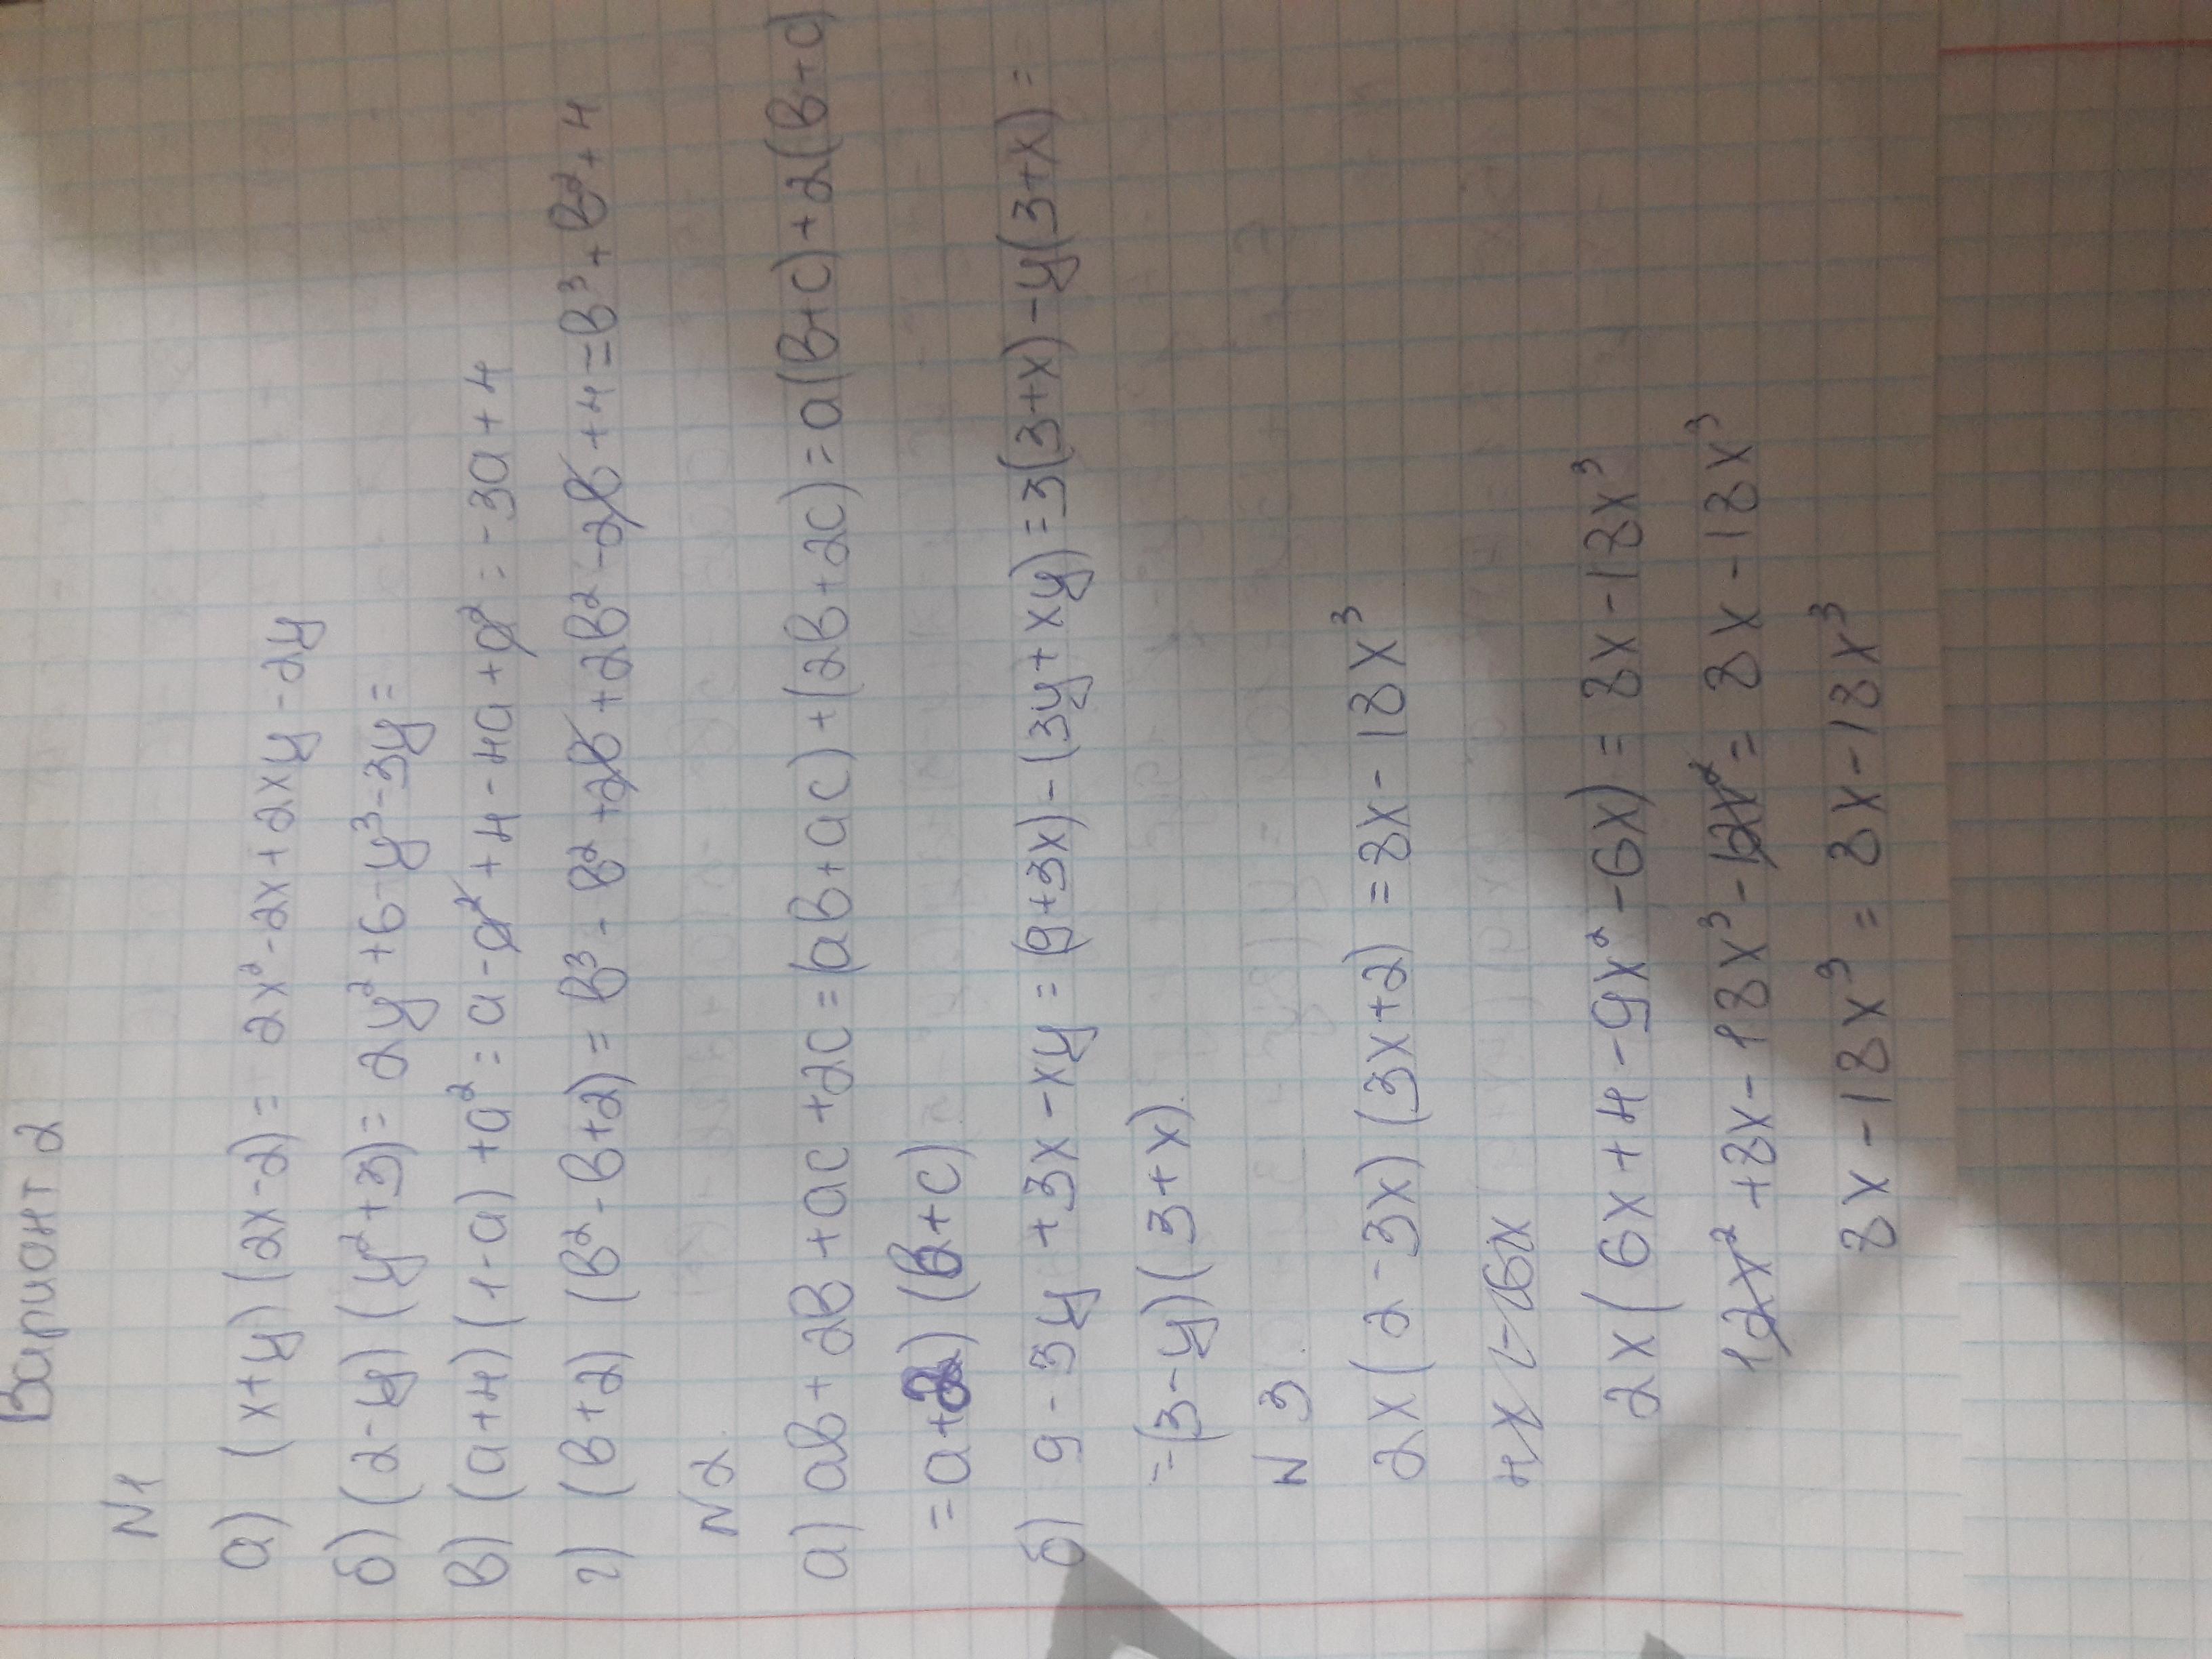 Вариант 2
N1
а) (x+y) (2x-2) = 2x²-2x+2xy-2y
б) (2-y) (y²+3) = 2y²+6-y³-3y=
в) (a+4) (1-a) +a² = a-a²+4-4a+a² = -3a+4
г) (b+2) (b²-b+2) = b³-b²+2b+2b²-2b+4=b³+b²+4
N2.
а) ab+2b+ac+2c=(ab+ac)+(2b+2c)=a(b+c)+2(b+c)
=a+2) (b+c)
б) 9-3y+3x-xy=(9+3x)-(3y+xy)=3(3+x)-y(3+x)=
=(3-y)(3+x).
N 3.
2x(2-3x)(3x+2)=8x-18x³
2x(6x+4-9x²-6x)=8x-18x³
12x²+8x-18x³-12x²=8x-18x³
8x-18x³=8x-18x³